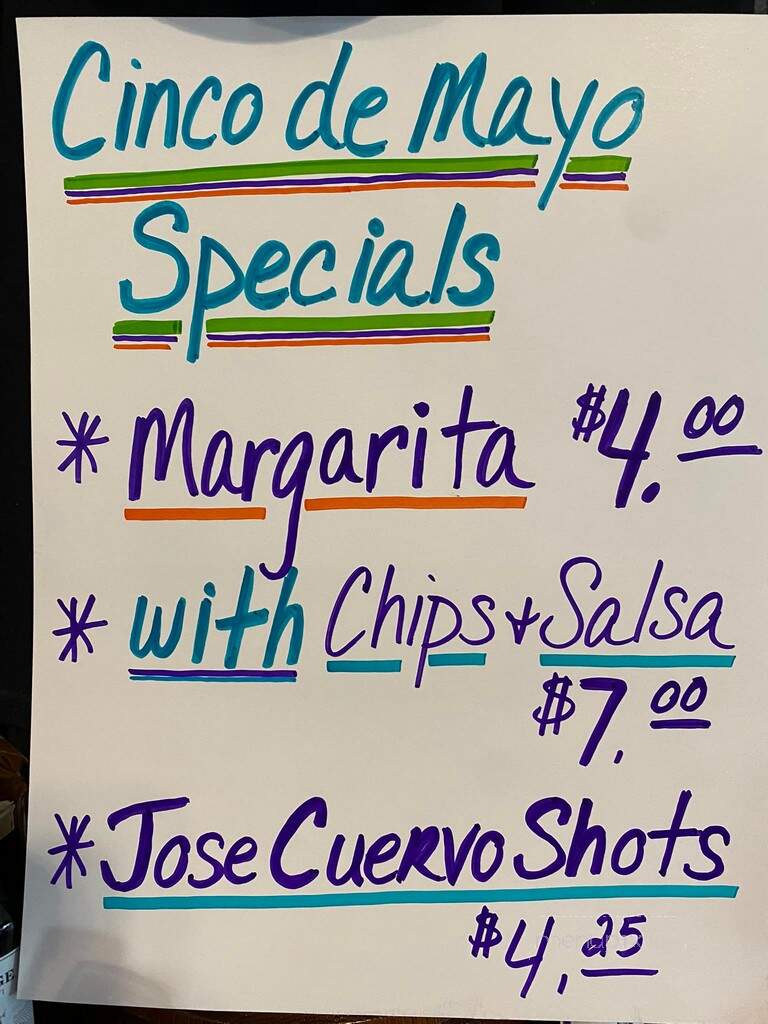 Cinco de Mayo
Specials
* Margarita $4.00
* with Chips & Salsa
$7.00
* Jose Cuervo Shots
$4.25